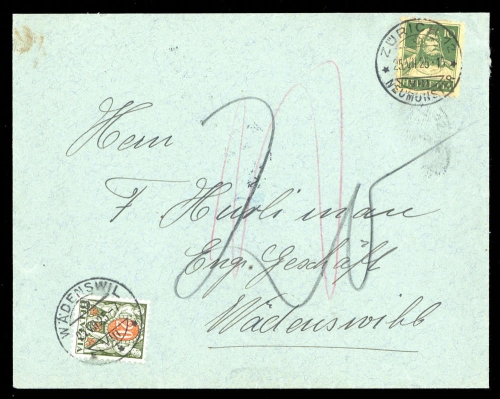 ZÜRICH
25.VII.25
NEUMÜNS
Herrn
F Hürlimann
Eng. Geschäft
Wädenswil
20
WÄDENSWIL